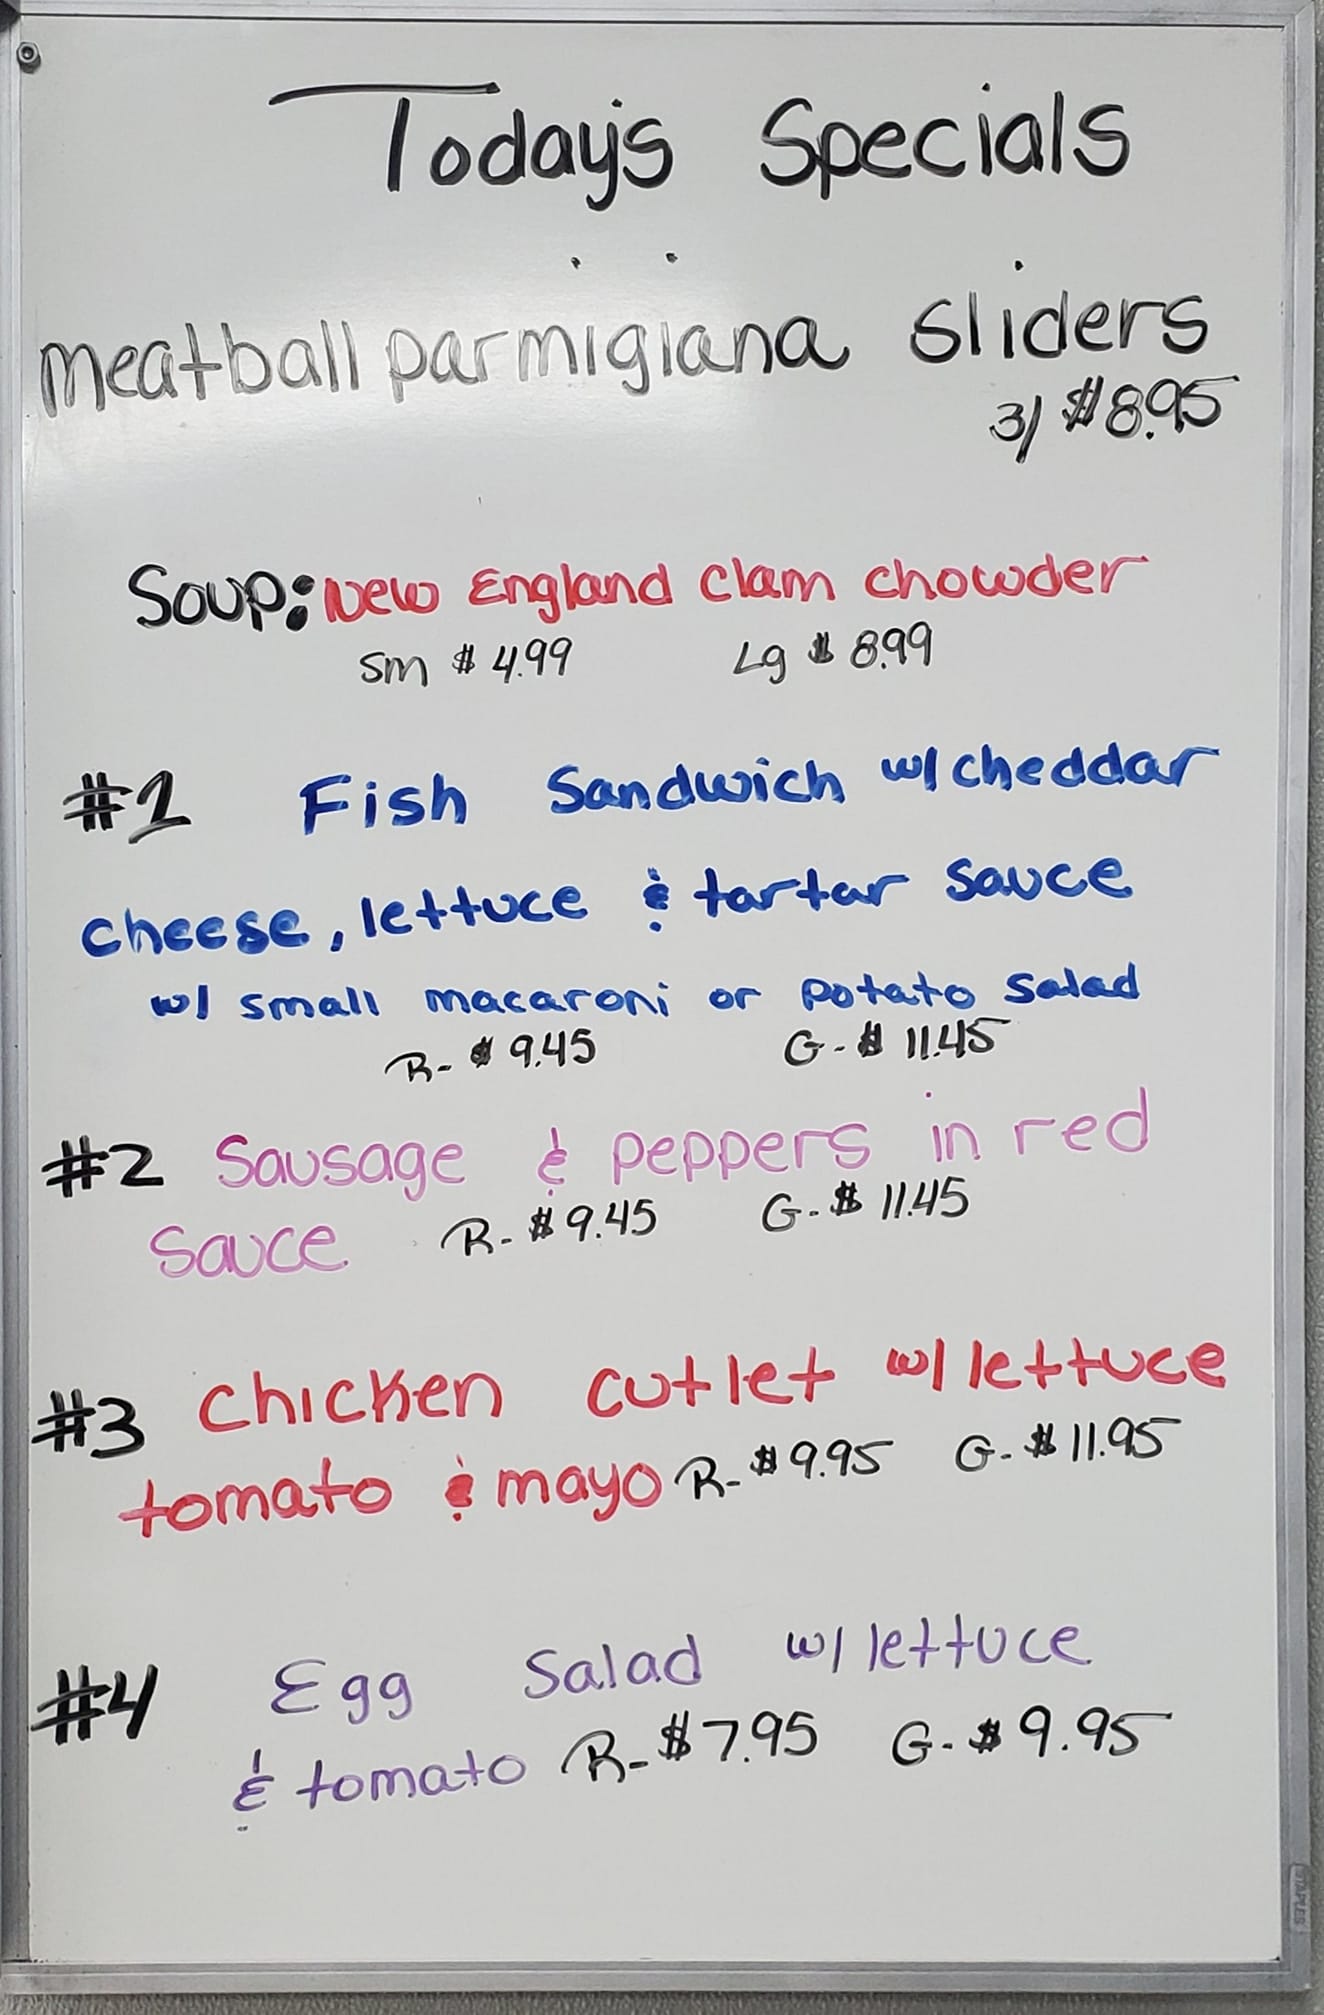 Today's Specials
meatball parmigiana sliders
3/ $8.95
Soup: New England Clam chowder
Sm $ 4.99 Lg $ 8.99
#1 Fish Sandwich w/cheddar
cheese, lettuce & tartar sauce
w/ small macaroni or potato salad
R- $ 9.45 G- $ 11.45
#2 Sausage & peppers in red
Sauce R- $ 9.45 G- $ 11.45
#3 Chicken cutlet w/ lettuce
tomato & mayo R- $ 9.95 G- $ 11.95
#4 Egg Salad w/ lettuce
& tomato R- $ 7.95 G- $ 9.95
STAPLES